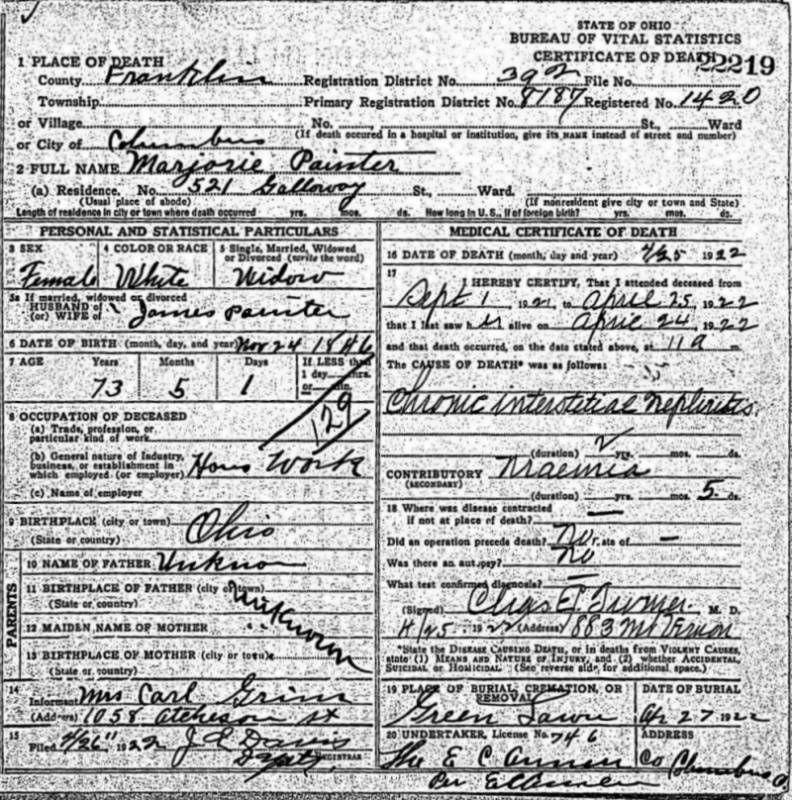 STATE OF OHIO
BUREAU OF VITAL STATISTICS
CERTIFICATE OF DEATH
22219
1 PLACE OF DEATH
County Franklin Registration District No. 392 File No.
Township Primary Registration District No. 8187 Registered No. 1420
or Village No. St., Ward
(If death occured in a hospital or institution, give its NAME instead of street and number)
or City of Columbus
2 FULL NAME Marjorie Painter
(a) Residence. No. 521 Galloway St., Ward.
(Usual place of abode) (If nonresident give city or town and State)
Length of residence in city or town where death occurred yrs. mos. ds. How long in U.S., if of foreign birth? yrs. mos. ds.
PERSONAL AND STATISTICAL PARTICULARS
3 SEX 4 COLOR OR RACE 5 Single, Married, Widowed
or Divorced (write the word)
Female White Widow
5a If married, widowed or divorced
HUSBAND of
(or) WIFE of James Painter
6 DATE OF BIRTH (month, day, and year) Nov 24 1846
7 AGE Years Months Days If LESS than
1 day hrs.
or min.
73 5 1
129
8 OCCUPATION OF DECEASED
(a) Trade, profession, or
particular kind of work
(b) General nature of Industry,
business, or establishment in
which employed (or employer) Hous Work
(c) Name of employer
9 BIRTHPLACE (city or town)
(State or country) Ohio
PARENTS
10 NAME OF FATHER Unknon
11 BIRTHPLACE OF FATHER (city or town)
(State or country) Unknown
12 MAIDEN NAME OF MOTHER
13 BIRTHPLACE OF MOTHER (city or town)
(State or country)
14
Informant Mrs Carl Grim
(Address) 1058 Atcheson St
15
Filed 4/26" 1922 J E Davis
REGISTRAR
MEDICAL CERTIFICATE OF DEATH
16 DATE OF DEATH (month, day and year) 4/25 1922
17
I HEREBY CERTIFY, That I attended deceased from
Sept 1, 1921, to April 25, 1922
that I last saw her alive on April 24, 1922
and that death occurred, on the date stated above, at 11 a m.
The CAUSE OF DEATH* was as follows:
Chronic interstitial Nephritis.
(duration) 2 yrs. mos. ds.
CONTRIBUTORY Uraemia
(SECONDARY)
(duration) yrs. mos. 5 ds.
18 Where was disease contracted
if not at place of death? —
Did an operation precede death? No Date of —
Was there an autopsy? No
What test confirmed diagnosis? —
(Signed) Chas E. Turner M. D.
4/25 1922 (Address) 883 Mt Vernon
*State the DISEASE CAUSING DEATH, or in deaths from VIOLENT CAUSES,
state (1) MEANS AND NATURE OF INJURY, and (2) whether ACCIDENTAL,
SUICIDAL or HOMICIDAL (See reverse side for additional space.)
19 PLACE OF BURIAL, CREMATION, OR
REMOVAL
DATE OF BURIAL
Green Lawn Ap 27 1922
20 UNDERTAKER, License No. 746 ADDRESS
The E C Co Columbus O
Per